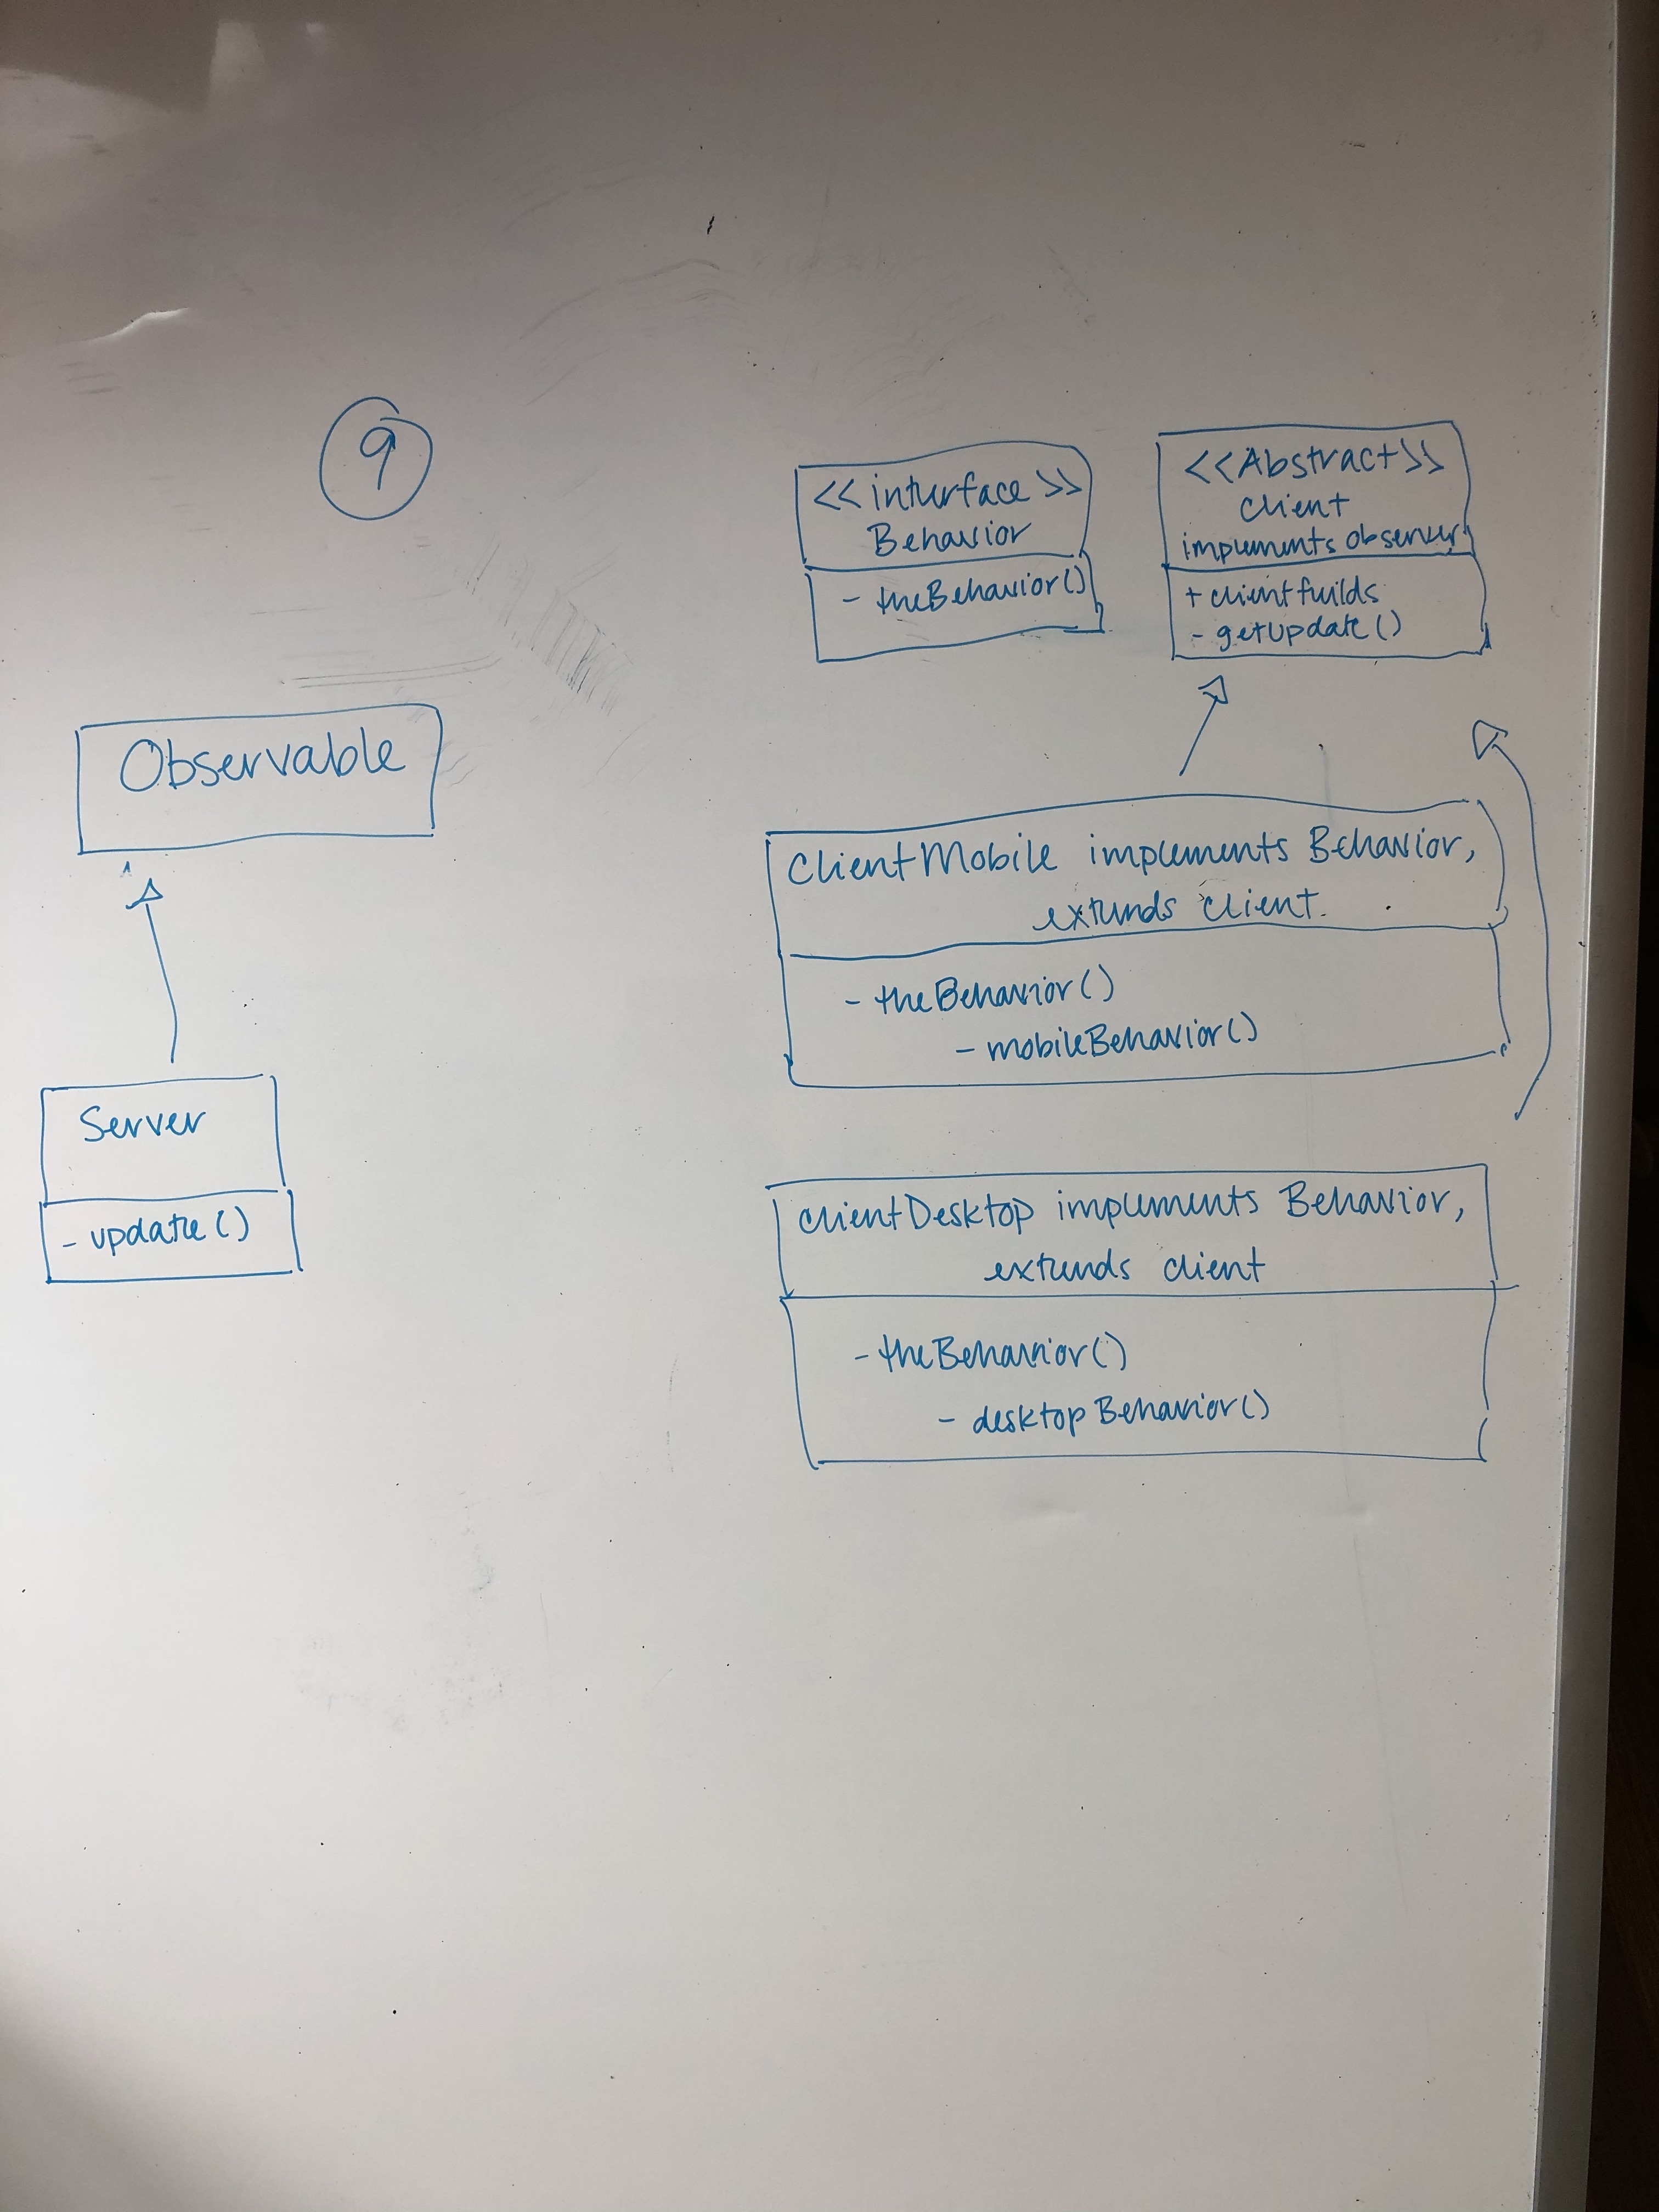 9
<<interface>>
Behavior
- theBehavior()
<<Abstract>>
Client
implements observer
+ clientfuilds
- getUpdate()
Observable
Server
- update()
ClientMobile implements Behavior,
extends client.
- theBehavior()
- mobileBehavior()
clientDesktop implements Behavior,
extends client
- theBehavior()
- desktopBehavior()